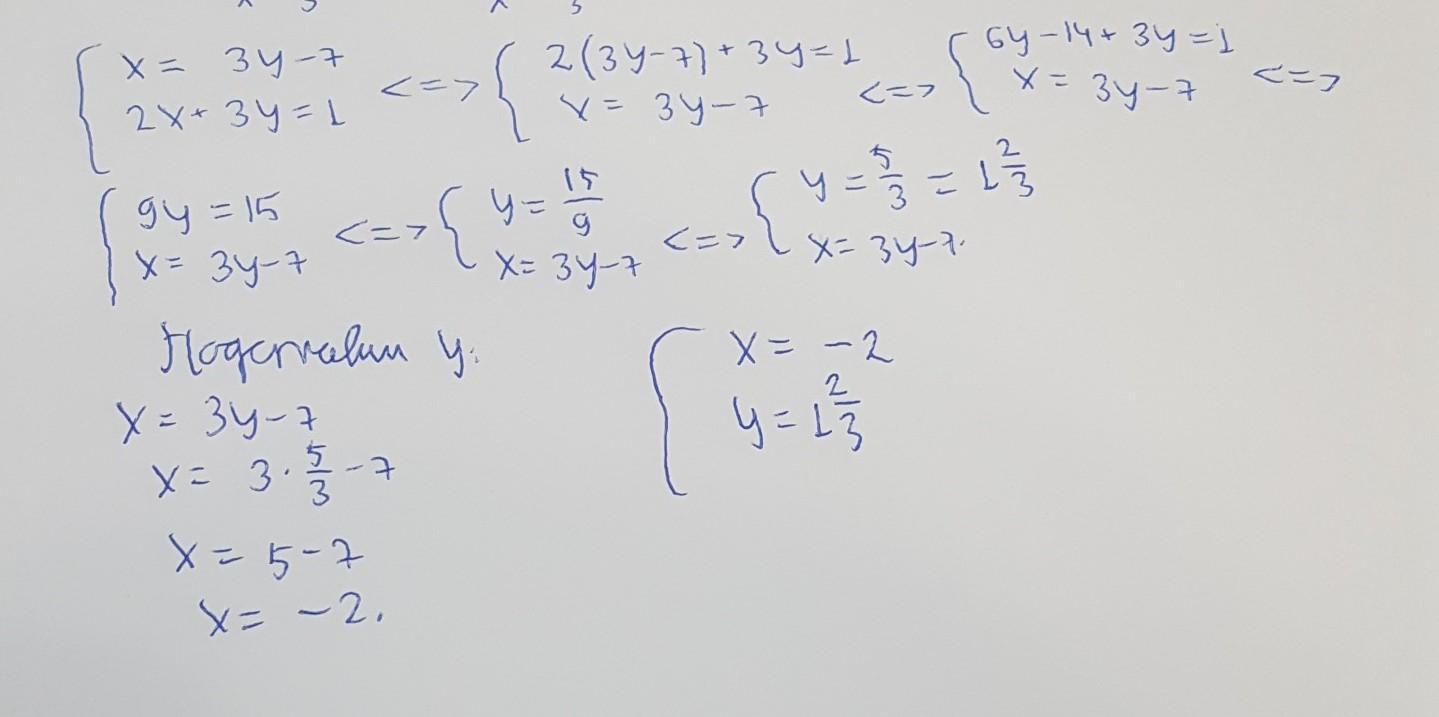 { x = 3y-7
2x+3y=1 <=> { 2(3y-7)+3y=1
x = 3y-7 <=> { 6y-14+3y=1
x = 3y-7 <=>
{ 9y=15
x = 3y-7 <=> { y = 15/9
x = 3y-7 <=> { y = 5/3 = 1 2/3
x = 3y-7.
y:
x = 3y-7
x = 3·5/3-7
x = 5-7
x = -2.
{ x = -2
y = 1 2/3